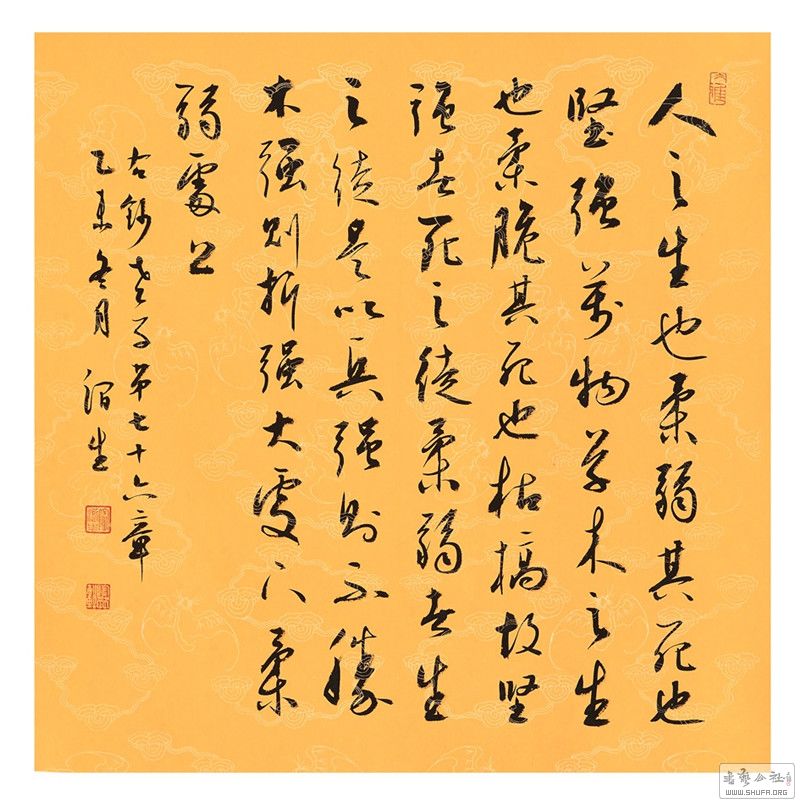 人之生也柔弱其死也
堅强萬物草木之生
也柔脆其死也枯槁故坚
强者死之徒柔弱者生
之徒是以兵强則不勝
木强则折强大處下柔
弱處上
右鈔老子第七十六章
乙未冬月 生
書藝公社
WWW.SHUFA.ORG